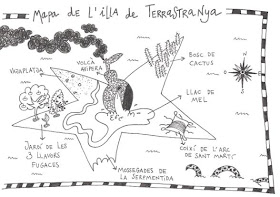 Mapa de L'illa de TERRASTRANYA
BOSC DE
CACTUS
VOLCÀ
VAPAPLATJA
LLAC DE
MEL
JARDÍ DE LES
3 LLAVORS
FUGACES
COIXÍ DE L'ARC
DE SANT MARTÍ
MOSSEGADES DE
LA SERPMENTIDA